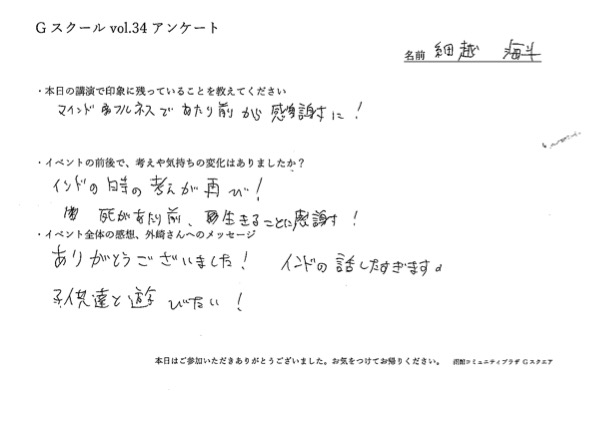 Gスクール vol.34 アンケート
名前 細越 海斗
・本日の講演で印象に残っていることを教えてください
マインドフルネスであたり前から感謝に!
・イベントの前後で、考えや気持ちの変化はありましたか?
インドの時の考えが再び!
死があたり前、生きることに感謝す!
・イベント全体の感想、外崎さんへのメッセージ
ありがとうございました! インドの話したすぎます。
子供達と遊びたい!
本日はご参加いただきありがとうございました。お気をつけてお帰りください。 函館コミュニティプラザ Gスクエア